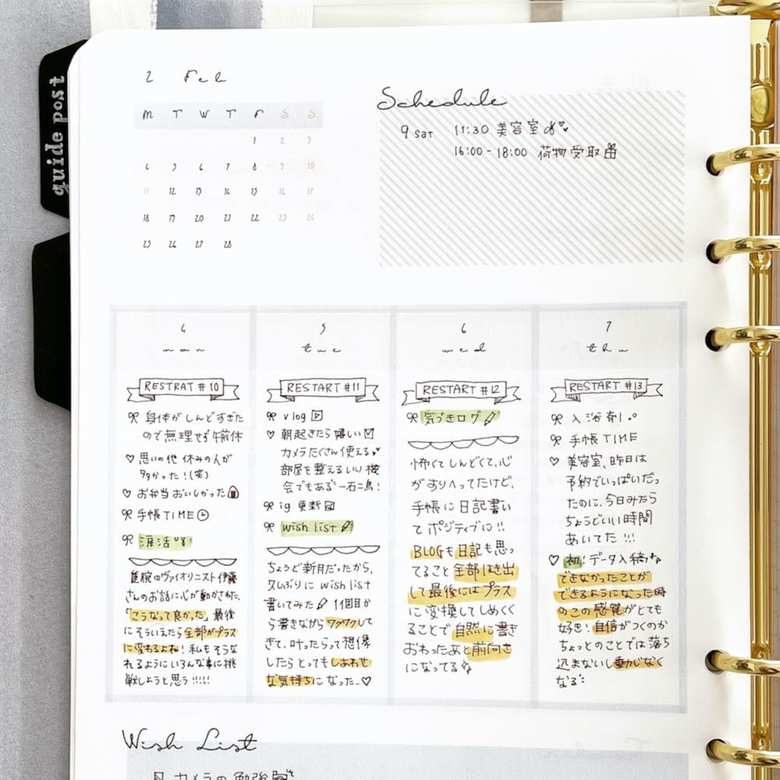 guide post
2 Feb
M T W T F S S
1 2 3
4 5 6 7 8 9 10
11 12 13 14 15 16 17
18 19 20 21 22 23 24
25 26 27 28
Schedule
9 sat 11:30 美容室
16:00-18:00 荷物受取
4
mon
RESTRAT #10
身体がしんどすぎた
ので無理せず午前休
思いの他 休みの人が
多かった!(笑)
お弁当おいしかった
手帳TIME
涙活
隻腕のヴァイオリニスト伊藤
さんのお話に心が動かされた。
「こうなって良かった」最後
にそういえたら全部がプラス
に変わるよね!私もそうな
れるようにいろんな事に挑
戦しようと思う!!!!!
5
tue
RESTART #11
vlog
朝起きたら嬉しい
カメラたくさん使える
部屋を整えるいい機
会でもある 一石二鳥!
ig 更新
wish list
ちょうど新月だったから、
久しぶりに wish list
書いてみた 1個目か
ら書きながらワクワクして
きて、叶ったらって想像
したらとってもしあわせ
な気持ちになった。
6
wed
RESTART #12
気づきログ
怖くてしんどくて、心
がすりへってたけど、
手帳に日記書い
てポジティブに!!
BLOGも日記も思っ
てること全部はき出
して最後にはプラス
に変換してしめくく
ることで自然に書き
おわったあと前向き
になってる
7
thu
RESTART #13
入浴剤
手帳TIME
美容室、昨日は
予約でいっぱいだっ
たのに、今日みたら
ちょうどいい時間
あいてた!!!
初!データ入稿
できなかったことが
できるようになった時
のこの感覚がとても
好き!自信がつくのか
ちょっとのことでは落ち
込まないし動じなく
なる
Wish List
カメラの勉強